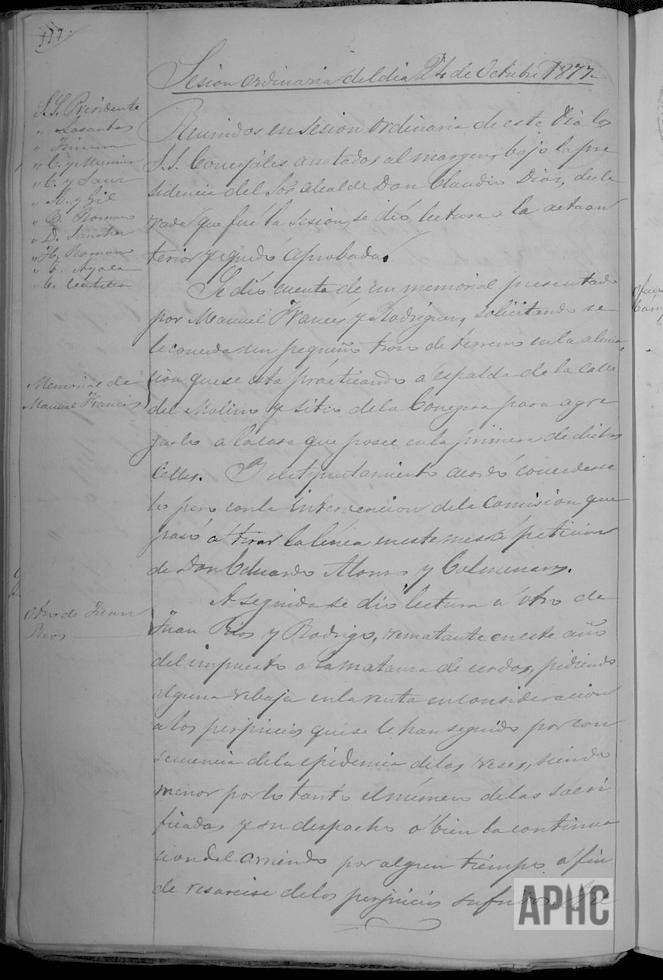 177.
Sesion ordinaria del dia 24 de Octubre 1877.
S.S. Presidente
" Losantos
"
" C. y Munica
" C. y Sanz
" N. y Gil
" B. Roman
" D. Sancho
" H. Roman
" C. Ayala
" C.
Reunidos en sesion ordinaria de este dia los
S.S. Concejales anotados al margen, bajo la pre
sidencia del Sor Alcalde Don Claudio Diaz, decla
rada que fué la sesion, se dió lectura a la acta an
terior y quedó aprobada.
Memorial de
Manuel Francés
Se dió cuenta de un memorial presentado
por Manuel Frances y Rodriguez, solicitando se
le conceda un pequeño trozo de terreno en la alinea
cion que se está practicando a espalda de la calle
del Molino y sitio de la Conegera para agre
garlo a la casa que posee en la primera de dichas
Calles. Y el Ayuntamiento acordó concederse
lo pero con la intervencion de la Comision que
pasó a tirar la linea en este mes á peticion
de Don Eduardo Alonso y Colmenares.
Otro de Juan
Rios
A seguida se dió lectura a otro de
Juan Rios y Rodrigo, rematante en este año
del impuesto a la matanza de cerdos, pidiendo
alguna rebaja en la renta en consideracion
a los perjuicios que se le han seguido por con
secuencia de la epidemia de las reses, siendo
menor por lo tanto el número de las sacri
ficadas y su despacho o bien la continua
cion del arriendo por algun tiempo á fin
de resarcirse de los perjuicios sufridos
APHC